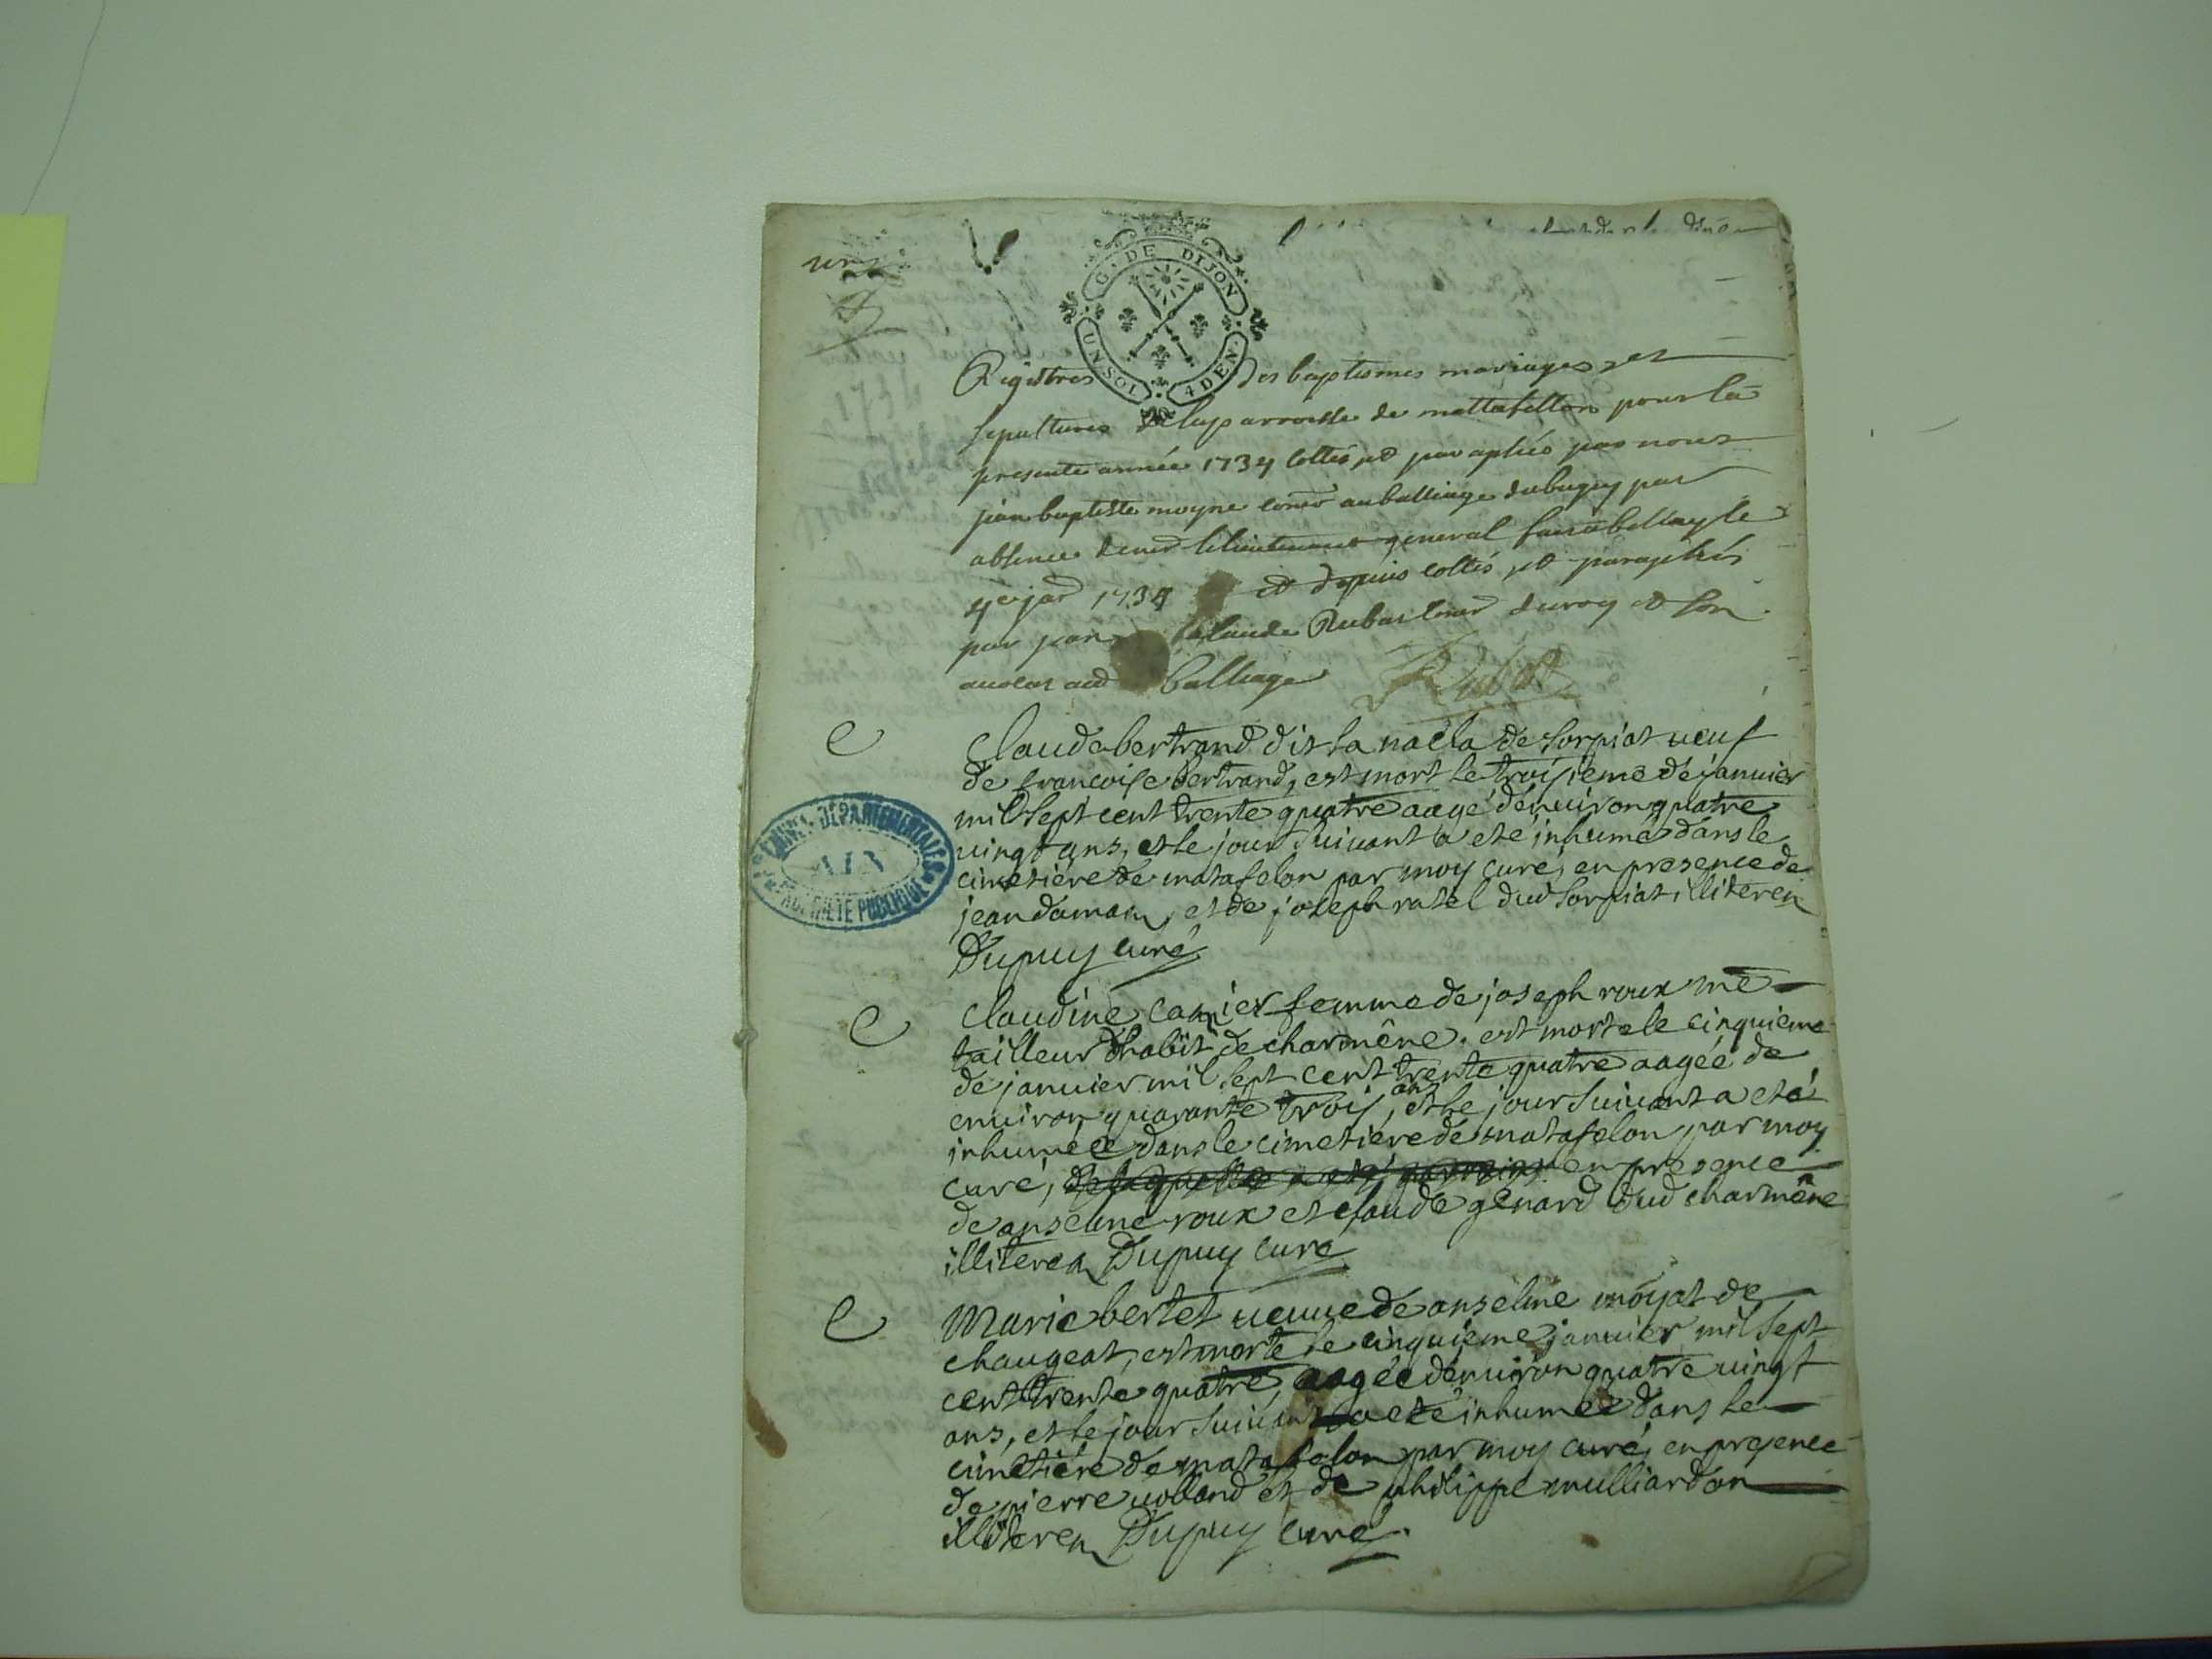 G. DE DIJON
UN SOL 4 DEN.
Registres des baptesmes mariages et
sepultures de la parroisse de mattafellon pour la
presente année 1734 cottés et paraphés par nous
jean baptiste moyne au balliage du bugey par
absence de le lieutenant general a bellay le
4e 1734 et depuis cottés et paraphés
par jean claude Rubat du roy et son
balliage Rubat
e
claude bertrand dit la naela de sorpiat ueuf
de francoise bertrand, est mort le troisieme de januier
mil sept cent trente quatre aagé d'enuiron quatre
uingt ans, et le jour suiuant a eté inhumé dans le
cimetiere de matafelon par moy curé, en presence de
jean daman, et de joseph ratel dud sorpiat illiteréz
Dupuy curé
ARCHIVES DÉPARTEMENTALES
AIN
PROPRIÉTÉ PUBLIQUE
e
claudine femme de joseph roux me
tailleur d'habit de charmêne. est morte le cinquieme
de januier mil sept cent trente quatre aagée de
enuiron quarante trois ans, et le jour suiuant a eté
inhumée dans le cimetiere de matafelon par moy
curé, en presence
de anselme roux et claude gënard dud charmêne
illiterez Dupuy curé
e
Marie bertet ueuue de anselme moyat de
chaugeat, est morte le cinquieme januier mil sept
cent trente quatre, aagée d'enuiron quatre uingt
ans, et le jour suiuant a eté inhumée dans le
cimetiére de matafelon par moy curé, en presence
de pierre uolland et de philippe mulliardon
illiterez Dupuy curé.